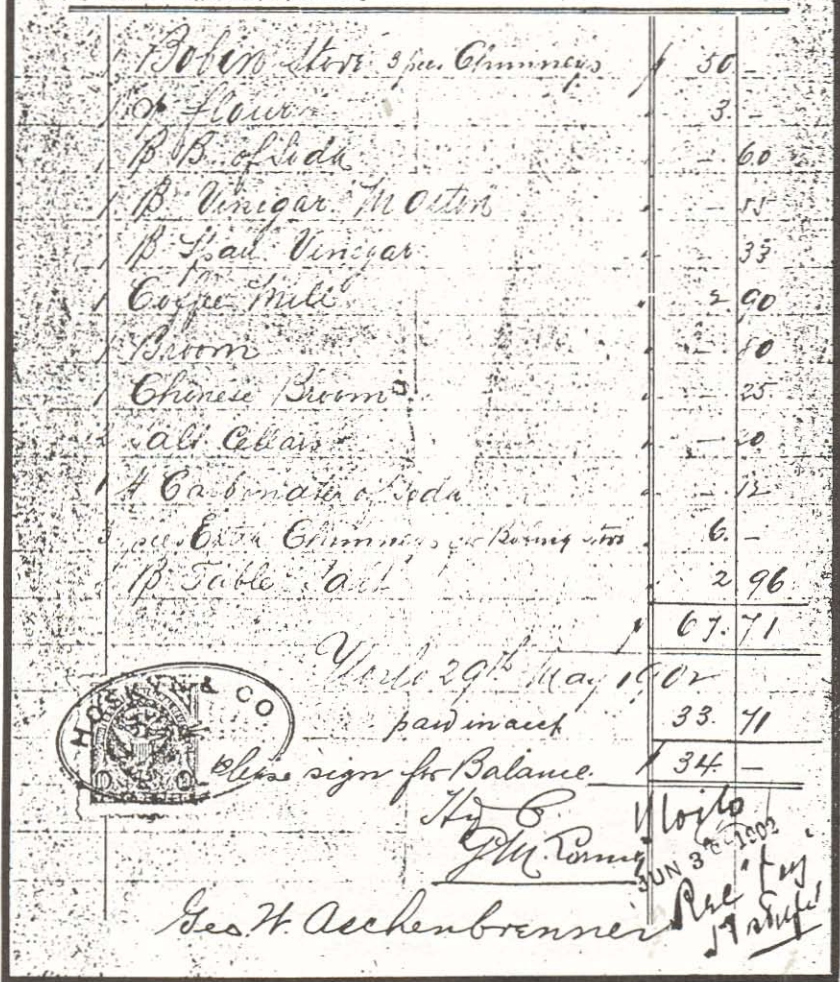 1 Bobin Stove 3 pcs Chimneys $ 50 -
1 flour 3. -
1 B B. of Soda - 60
1 B Vinegar M - 55
1 B Vinegar - 33
1 Coffee Mill 2 90
1 Broom - 80
1 Chinese Broom - 25
2 Salt Cellars - 20
1 # Carbonate of Soda - 12
3 pces Extra Chimneys for stove 6. -
1 B Table Salt 2 96
$ 67. 71
Iloilo 29th May 1902
paid in acct 33. 71
Please sign for Balance. $ 34. -
HOSKYN & CO
Iloilo
JUN 30 1902
Rec'd
Geo. W. Aschenbrenner